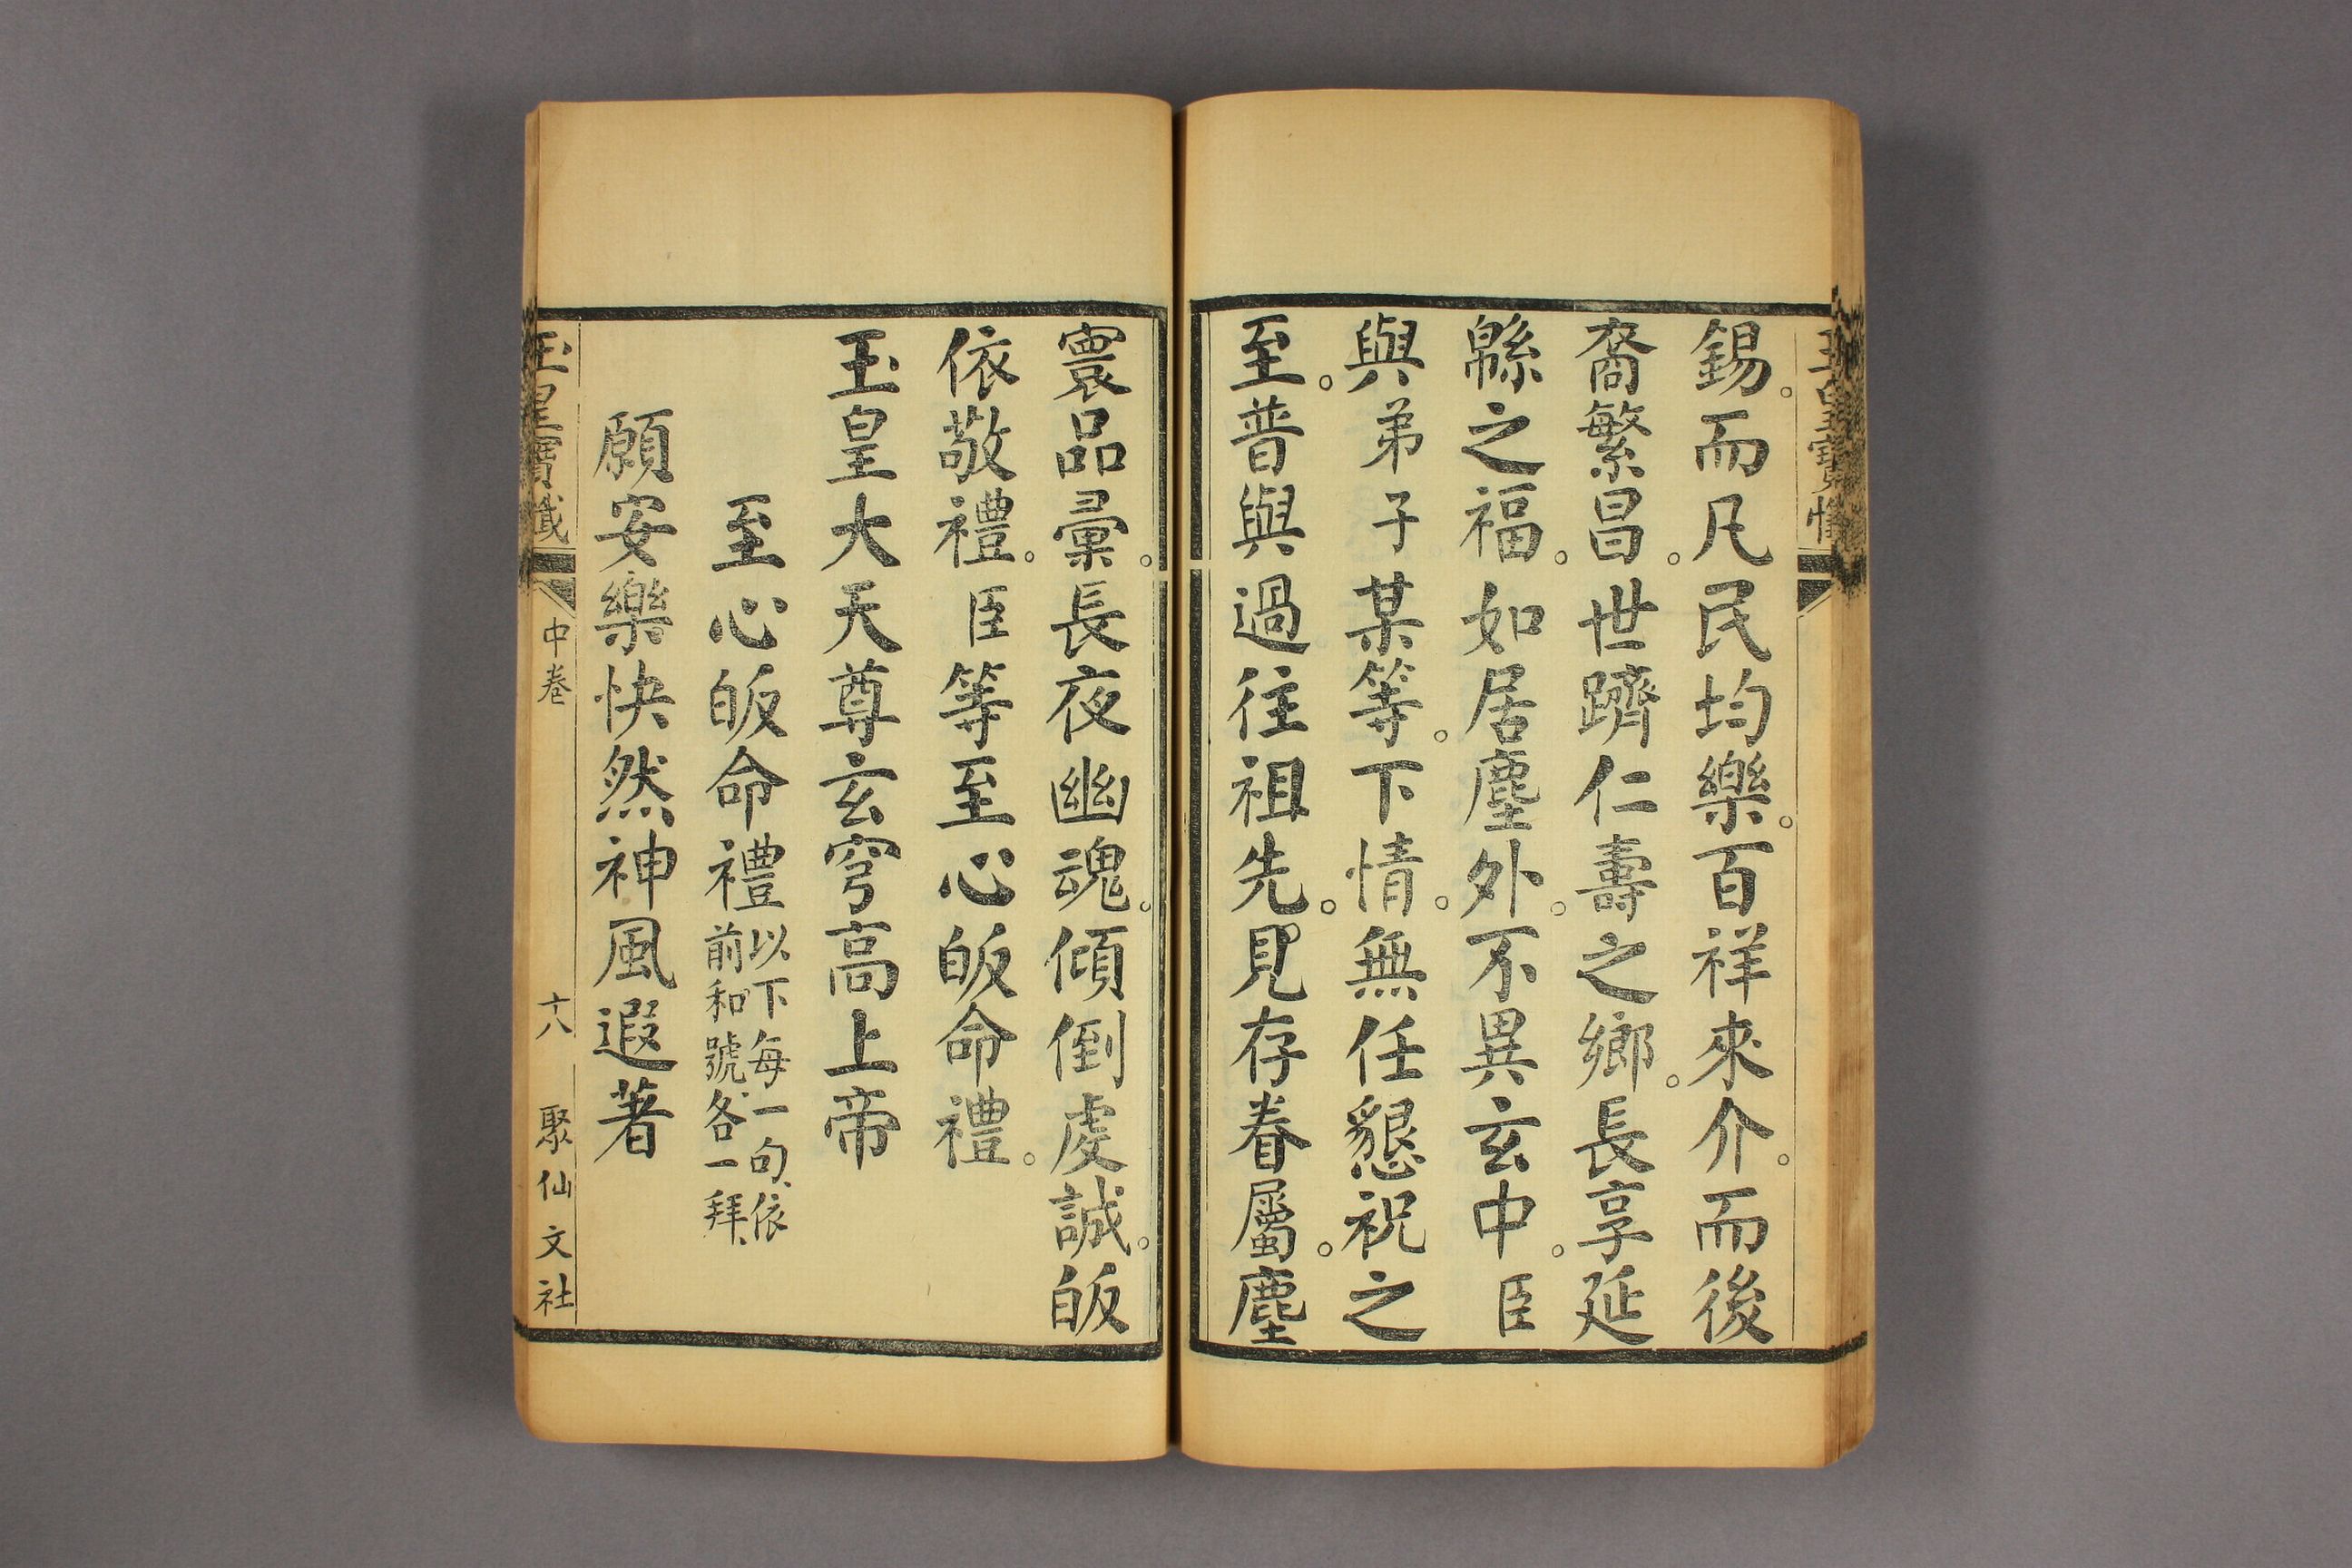 錫。而凡民均樂。百祥來介。而後
裔繁昌。世躋仁壽之鄉。長享延
緜之福。如居塵外。不異玄中。臣
與弟子某等。下情。無任懇祝之
至。普與過往祖先。見存眷屬。塵
寰品彙。長夜幽魂。傾倒虔誠。皈
依敬禮。臣等至心皈命禮。
玉皇大天尊玄穹高上帝
至心皈命禮
以下每一句、依
前和號、各一拜、
願安樂快然神風遐著
玉皇寶懺
中卷
十八
聚仙文社